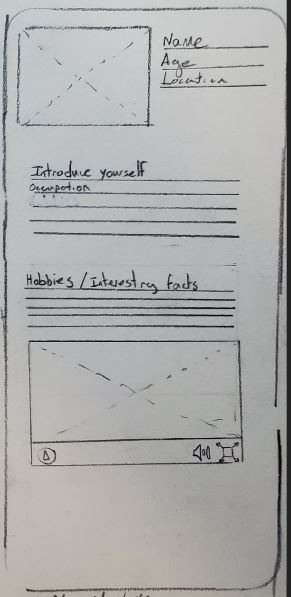 Name
Age
Location
Introduce yourself
Occupation
Hobbies / Interesting facts